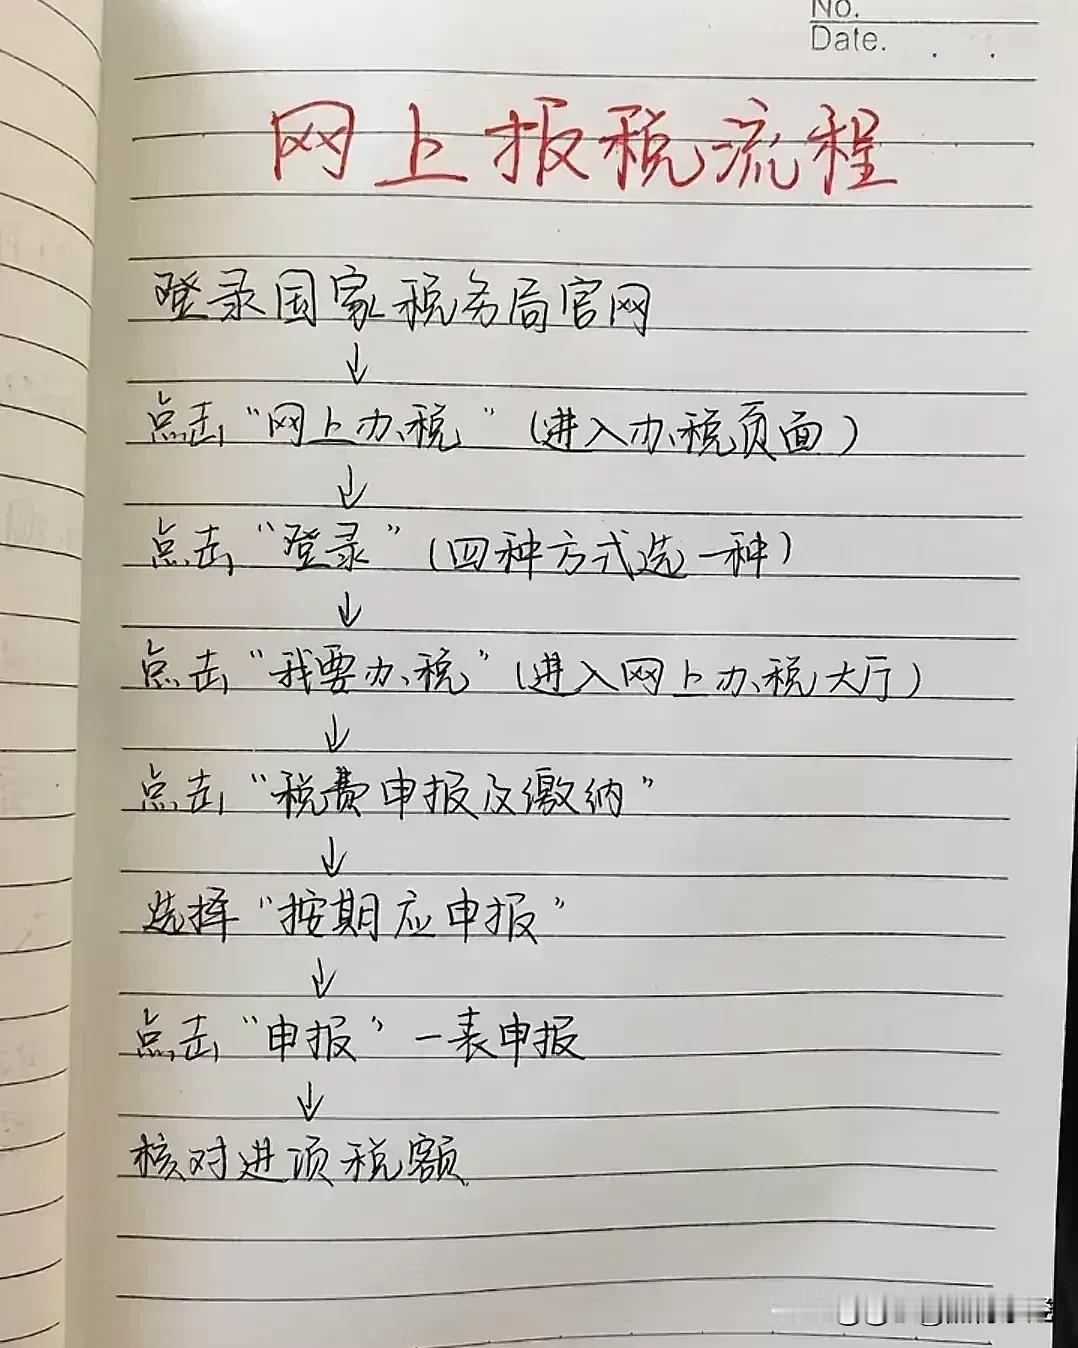 No.
Date.
网上报税流程
登录国家税务局官网
↓
点击“网上办税”(进入办税页面)
↓
点击“登录”(四种方式选一种)
↓
点击“我要办税”(进入网上办税大厅)
↓
点击“税费申报及缴纳”
↓
选择“按期应申报”
↓
点击“申报”一表申报
↓
核对进项税额